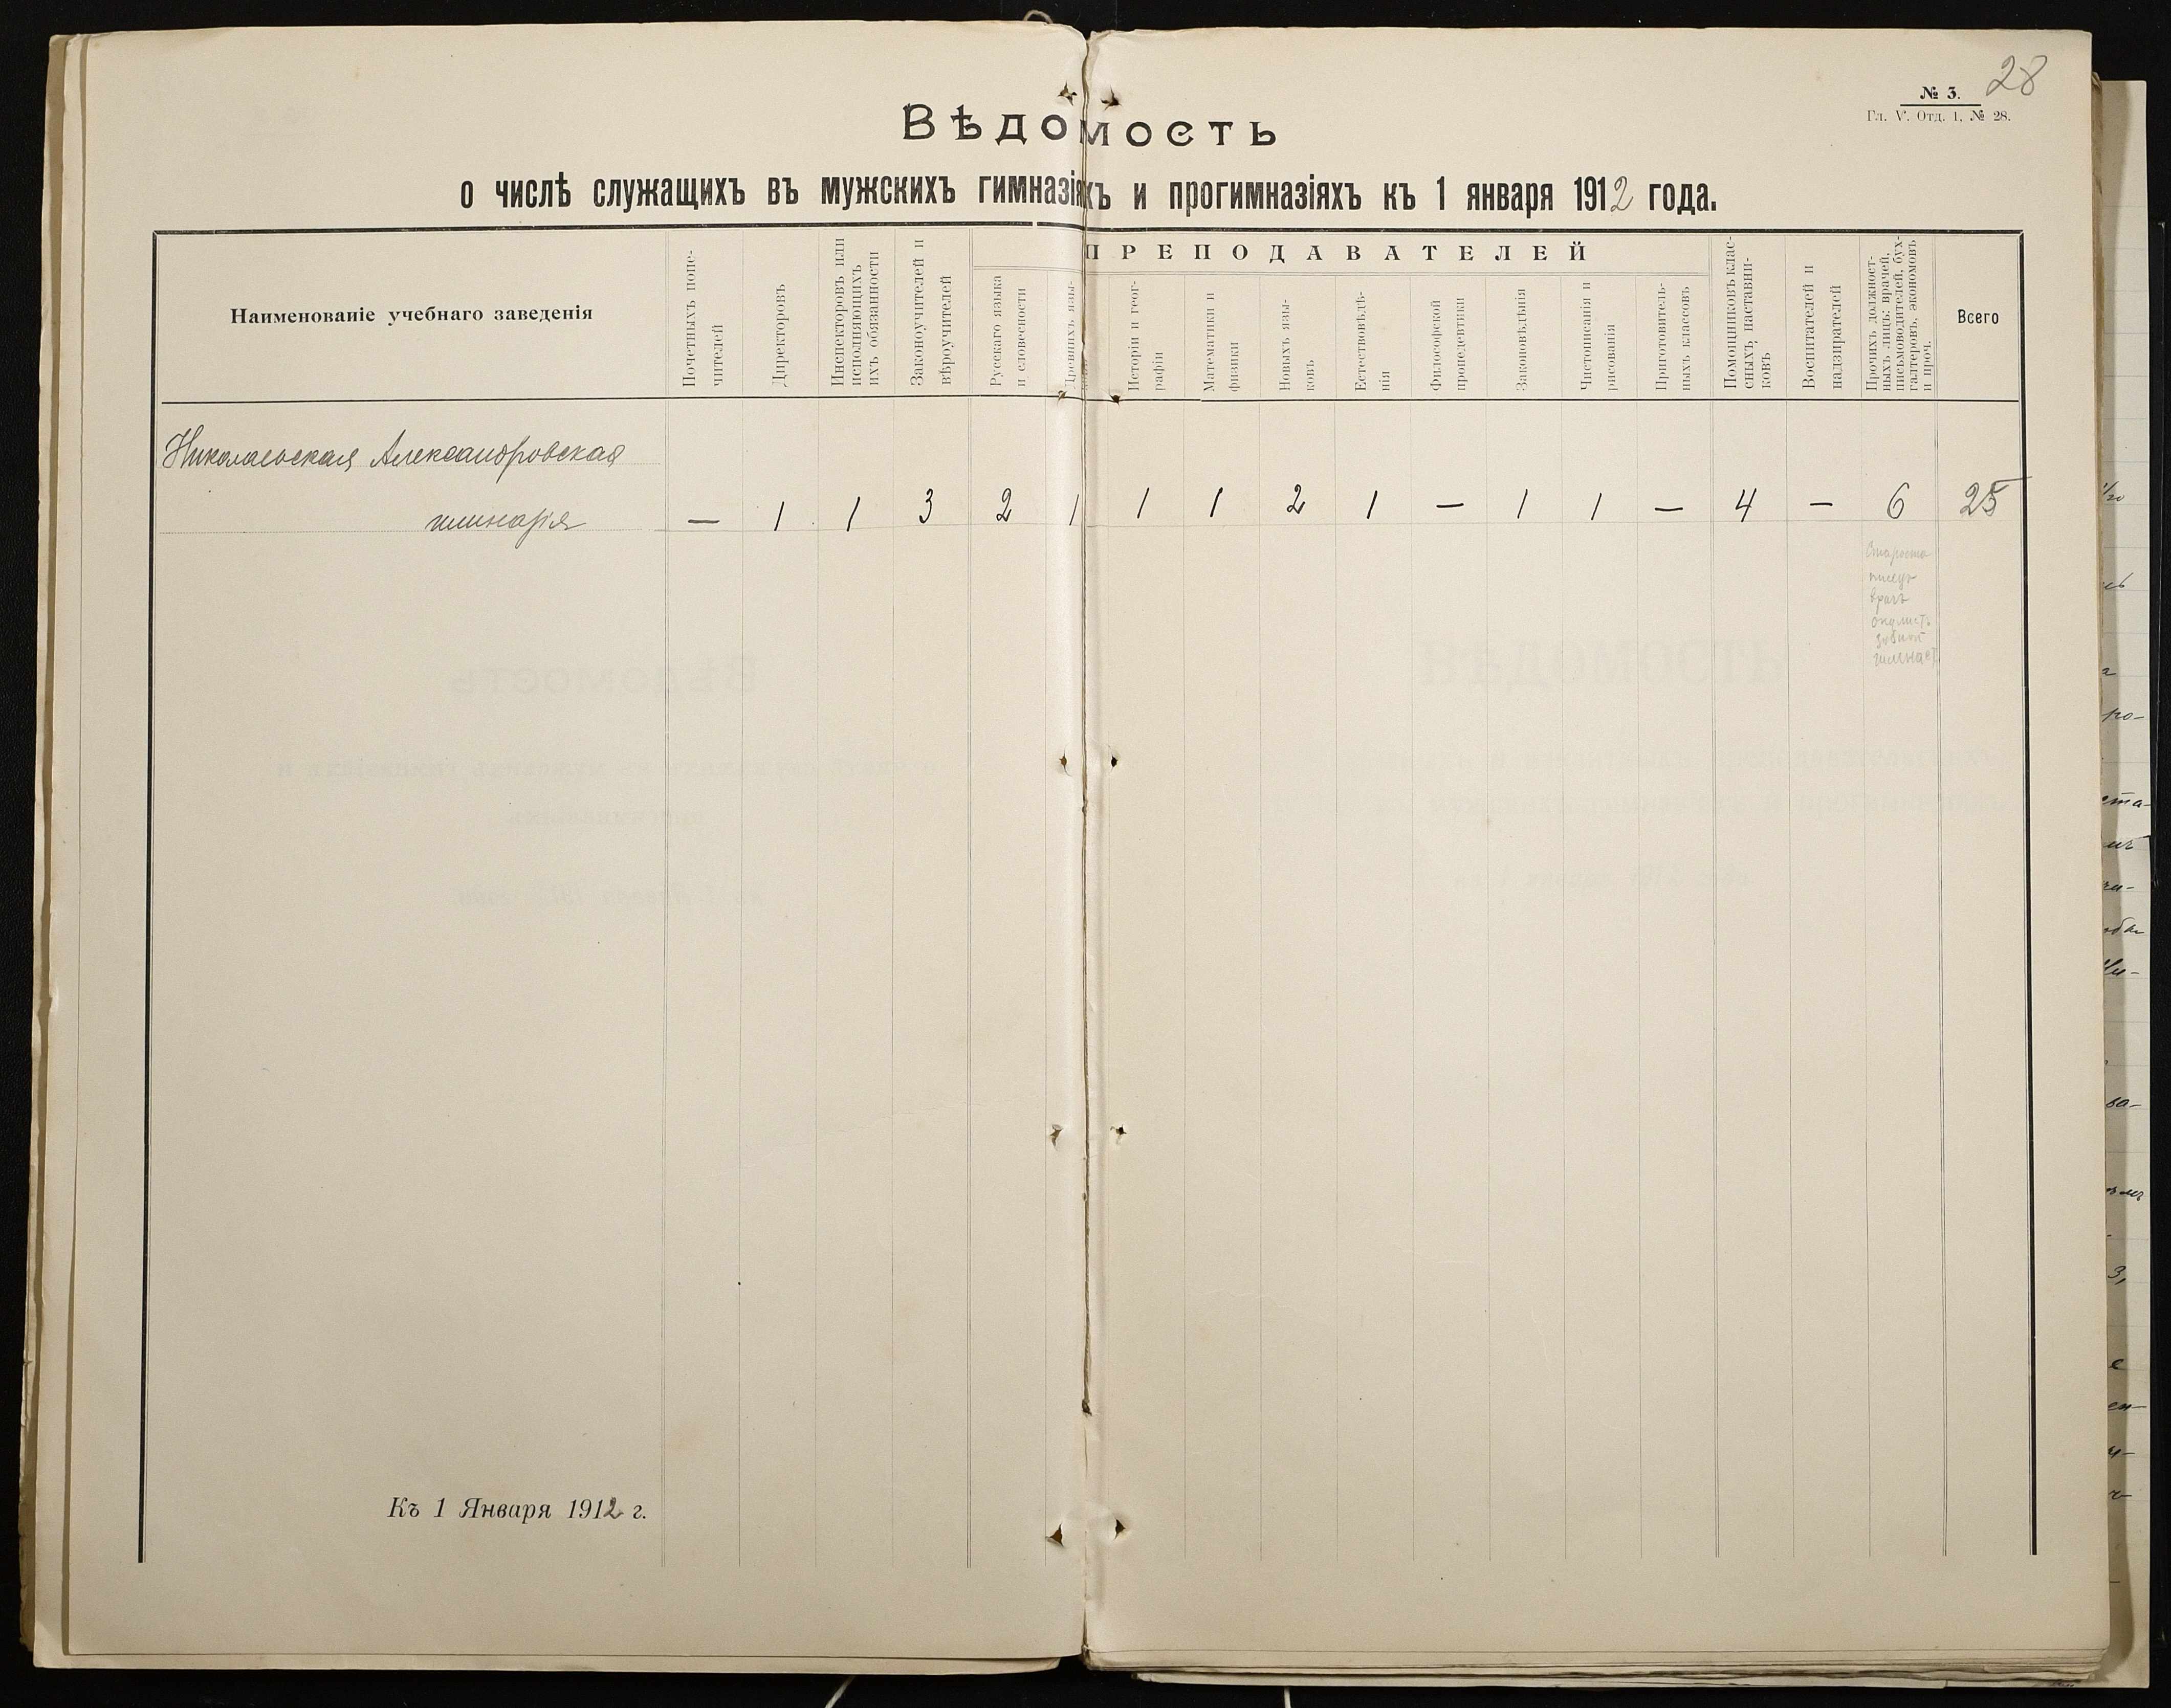 28
№ 3.
Гл. V. Отд. 1, № 28.
Вѣдомость
о числѣ служащихъ въ мужскихъ гимназіяхъ и прогимназіяхъ къ 1 января 1912 года.
Наименованіе учебнаго заведенія
Почетныхъ попе-
чителей
Директоровъ
Инспекторовъ или
исполняющихъ
ихъ обязанности
Законоучителей и
вѣроучителей
ПРЕПОДАВАТЕЛЕЙ
Русскаго языка
и словесности
Древнихъ язы-
Исторіи и геог-
рафіи
Математики и
физики
Новыхъ язы-
ковъ
Естествовѣдѣ-
нія
Философской
пропедевтики
Законовѣдѣнія
Чистописанія и
рисованія
Приготовитель-
ныхъ классовъ
Помощниковъ клас-
сныхъ наставни-
ковъ
Воспитателей и
надзирателей
Прочихъ должност-
ныхъ лицъ: врачей,
письмоводителей, бух-
галтеровъ, экономовъ
и проч.
Всего
Николаевская Александровская
гимназія — 1 1 3 2 1 1 1 2 1 — 1 1 — 4 — 6 25
Староста
писецъ
врачъ
окулистъ
зубной
гимнаст.
Къ 1 Января 1912 г.